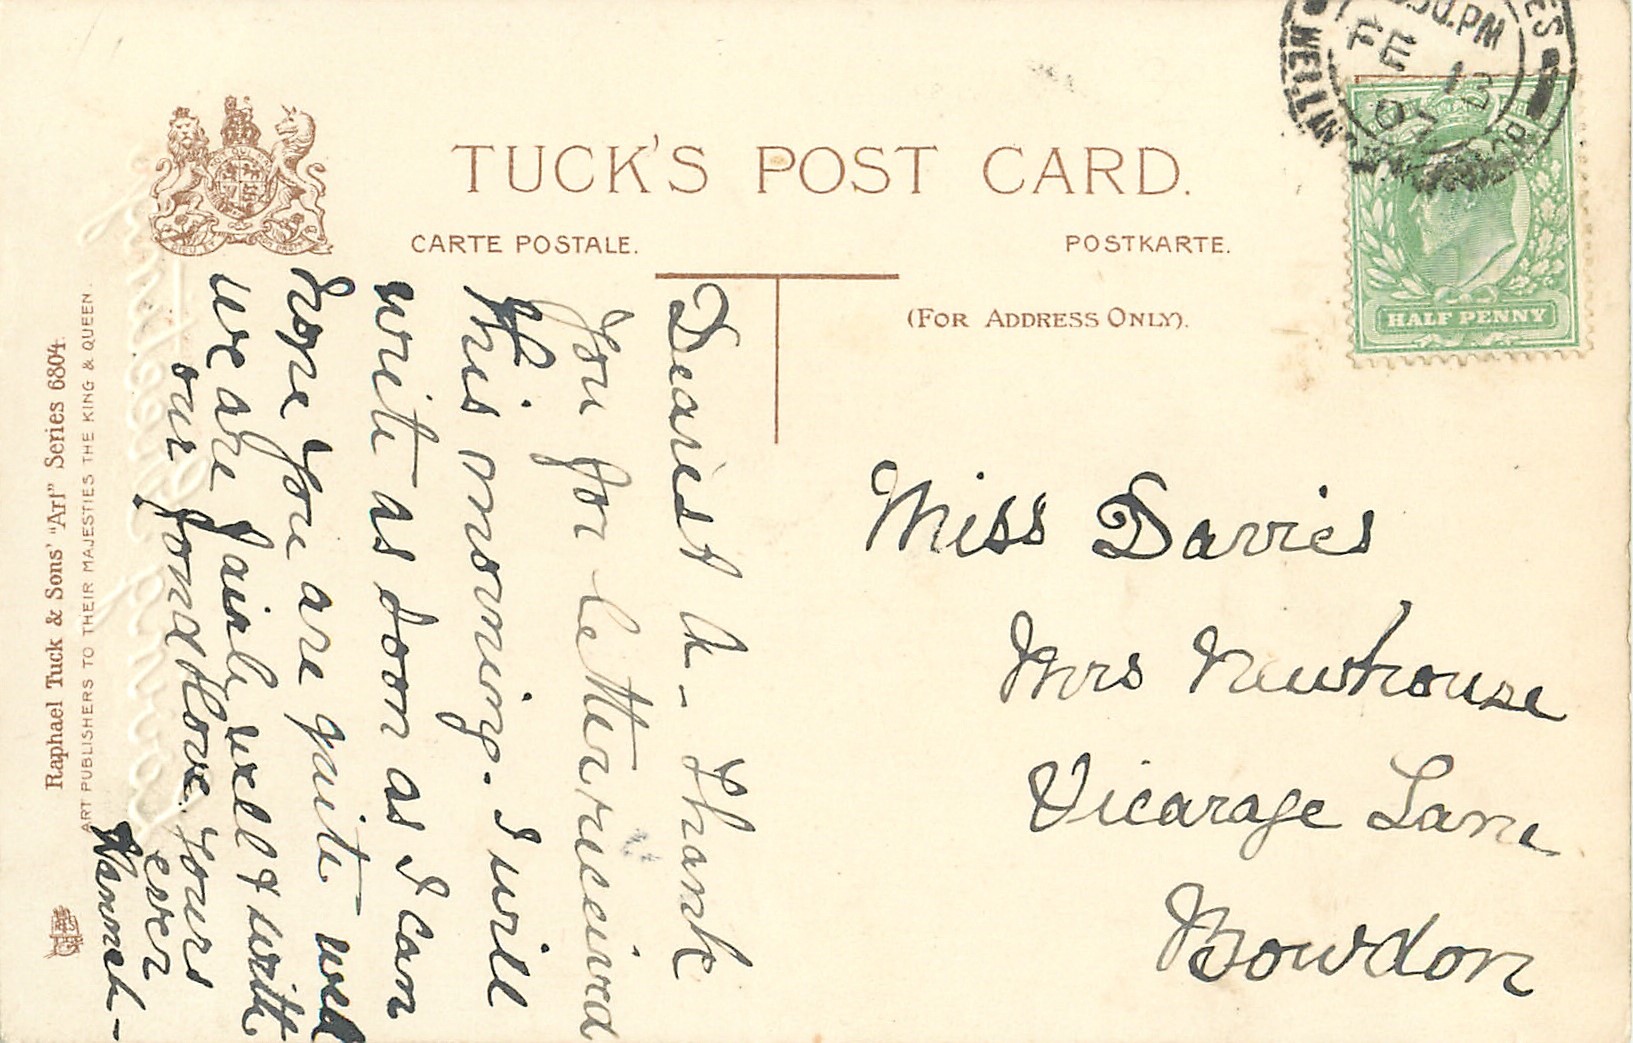 TUCK'S POST CARD.
CARTE POSTALE.
POSTKARTE.
(FOR ADDRESS ONLY).
HALF PENNY
.30.PM
FE 13
07
Raphael Tuck & Sons' "Art" Series 6804.
ART PUBLISHERS TO THEIR MAJESTIES THE KING & QUEEN.
Dearest A - Thank
you for letter received
this morning. I will
write as soon as I can
hope you are quite well
we are fairly well & with
our fond love. Yours
ever
Hannah -
Miss Davies
Mrs Newhouse
Vicarage Lane
Bowdon